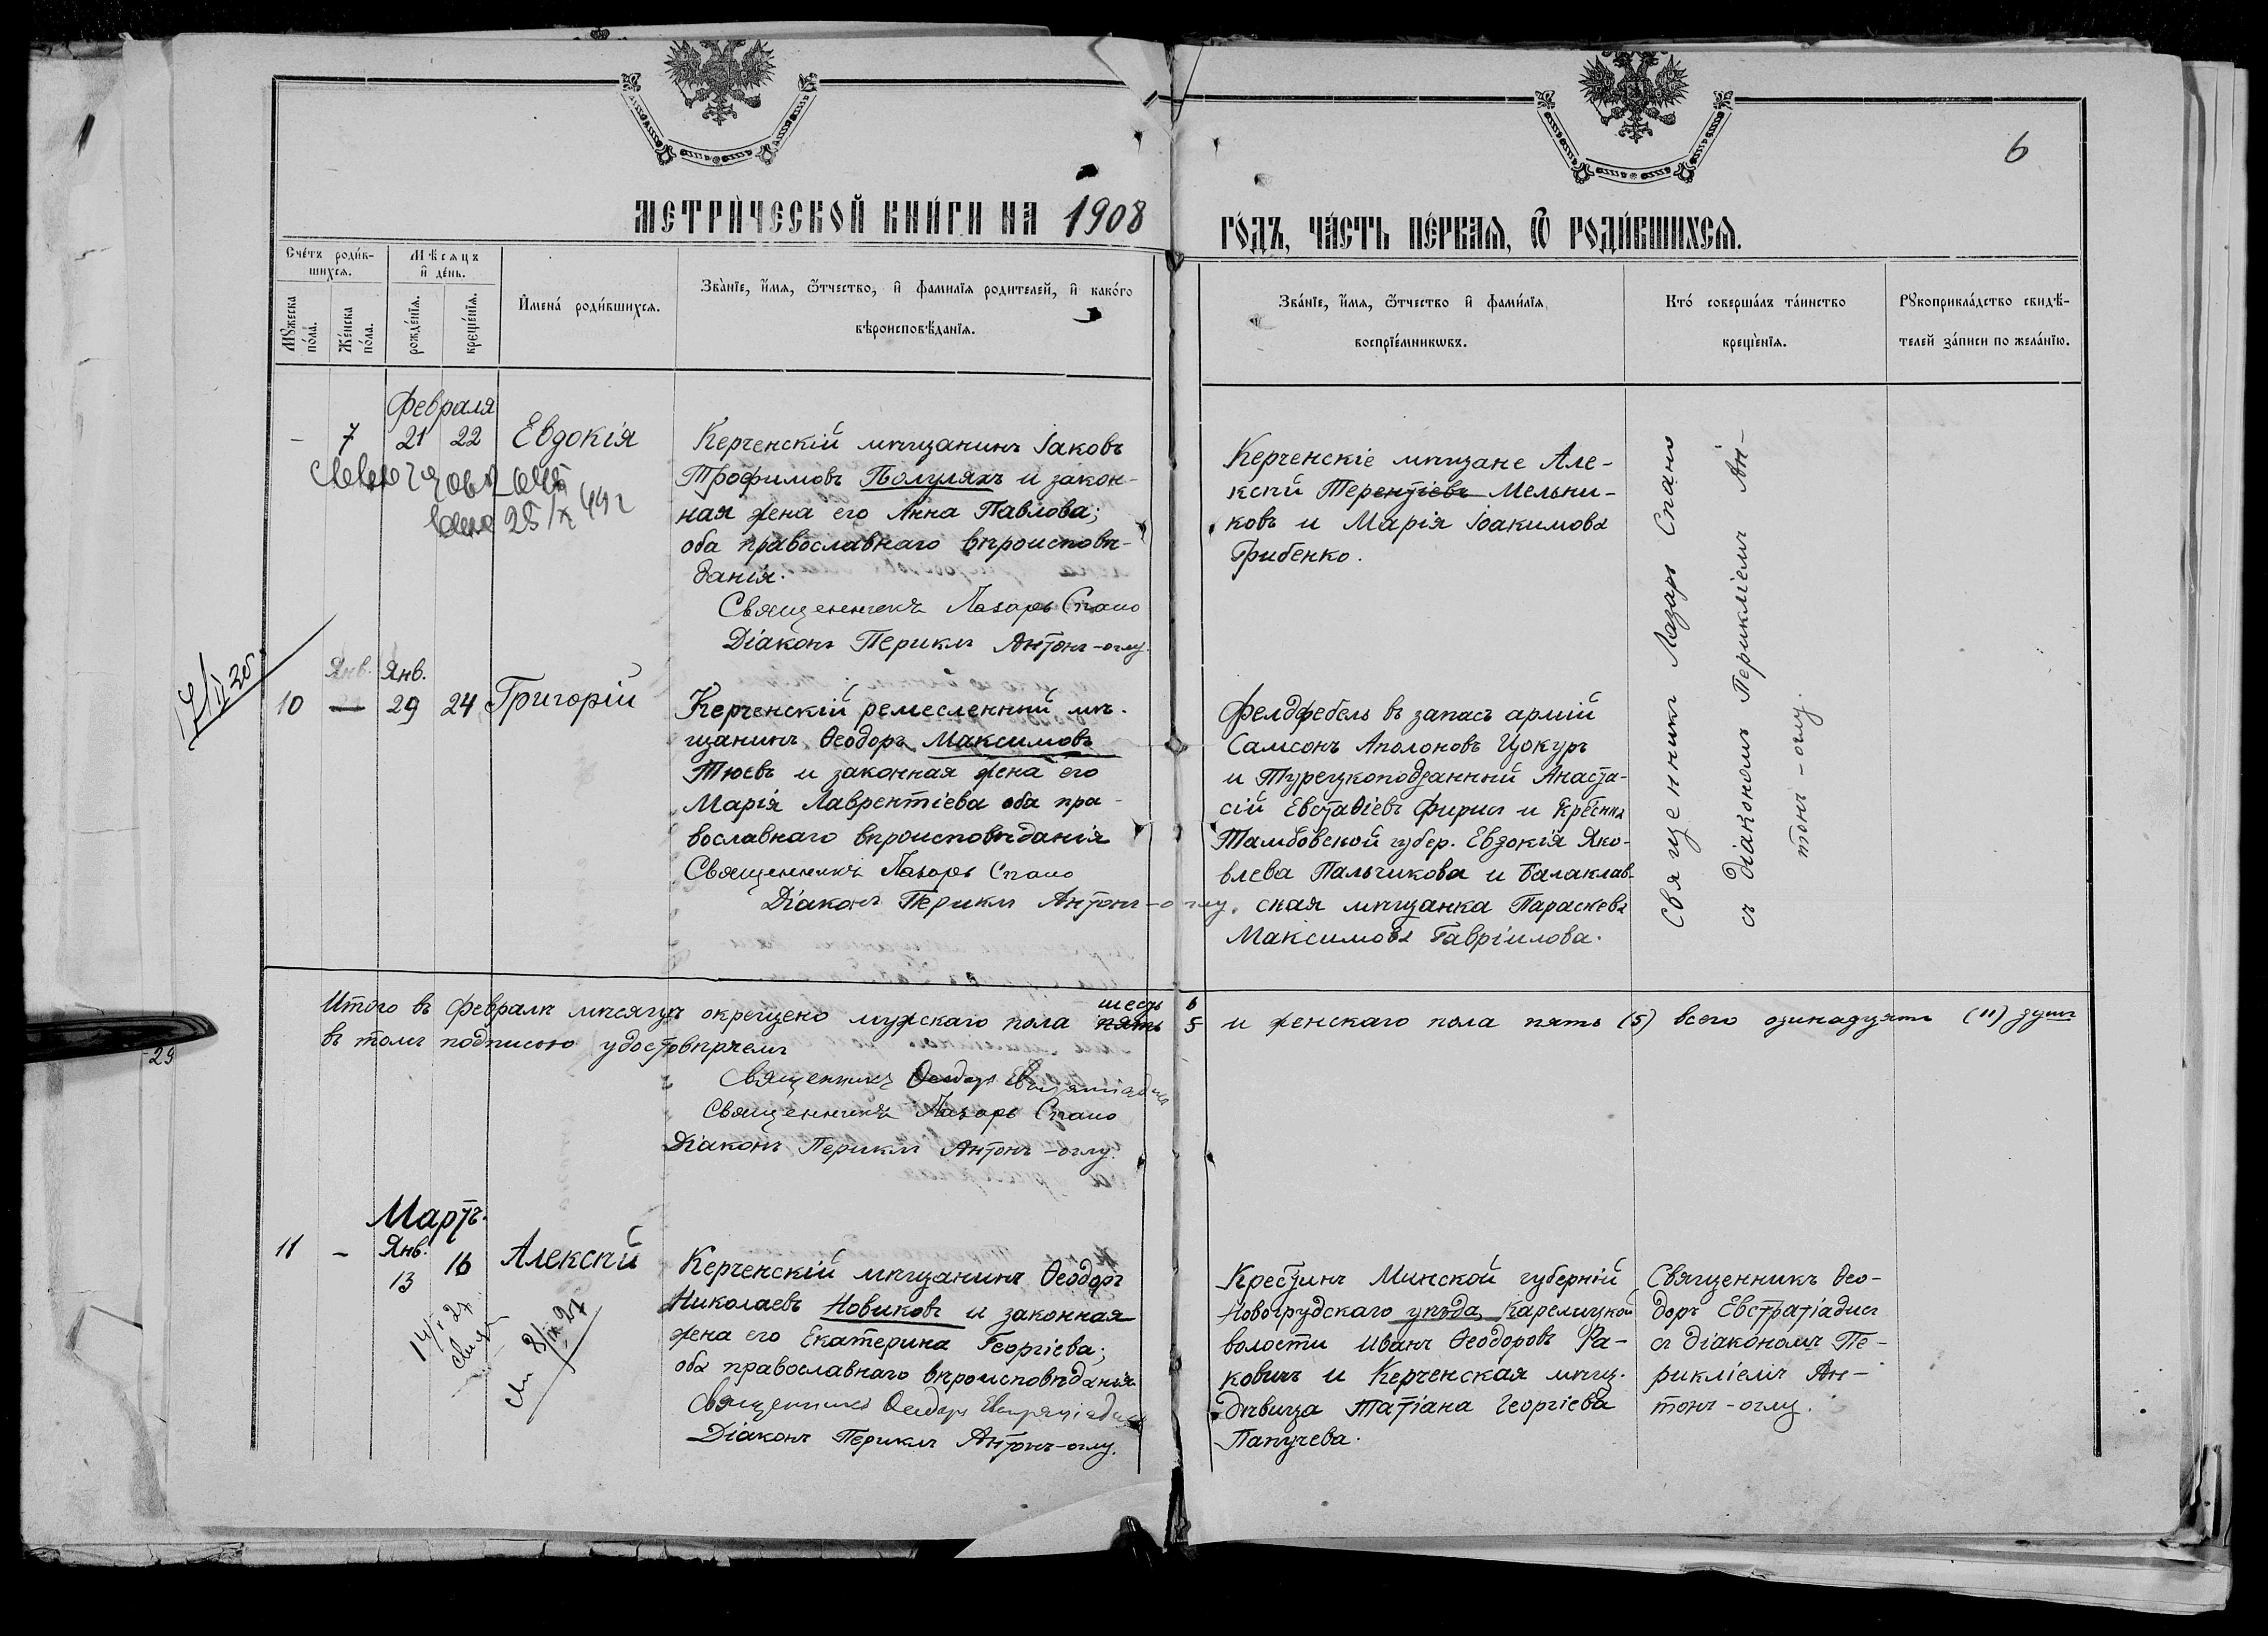 6
МЕТРИ́ЧЕСКОЙ КНИ́ГИ НА 1908
ГО́ДЪ, ЧА́СТЬ ПЕ́РВАѦ, Ѿ РОДИ́ВШИХСѦ.
Сче́тъ роди́в-
шихсѧ.
Мѣсѧцъ
и҆ де́нь.
Мꙋ́жеска
по́ла.
Же́нска
по́ла.
рожде́нїѧ.
креще́нїѧ.
И҆мена́ роди́вшихсѧ.
Зва́нїе, и҆́мѧ, ѻ҆́тчество, и҆ фами́лїѧ роди́телей, и҆ како́гѡ
вѣроисповѣ́данїѧ.
Зва́нїе, и҆́мѧ, ѻ҆́тчество и҆ фами́лїѧ
воспрїе́мникѡвъ.
Кто̀ соверша́лъ та́инство
креще́нїѧ.
Рꙋкоприкла́дство свидѣ́-
телей за́писи по жела́нїю.
Февраля
- 7 21 22 Евдокія
Керченскій мѣщанинъ Іаковъ
Трофимовъ Полуляхъ и закон-
ная жена его Анна Павлова;
оба православнаго вѣроисповѣ-
данія.
Священникъ Лазарь Спано
Діаконъ Периклъ Антонъ-оглу.
Керченскіе мѣщане Але-
ксѣй Терентіевъ Мельни-
ковъ и Марія Іоакимова
Грибенко.
Священникъ Лазарь Спано
съ діакономъ Перикліемъ Ан-
тонъ-оглу.
25/X 49 г
Янв. Янв.
10 — 29 24 Григорій
Керченскій ремесленный мѣ-
щанинъ Ѳеодоръ Максимовъ
Тюевъ и законная жена его
Марія Лаврентіева оба пра-
вославнаго вѣроисповѣданія
Священникъ Лазарь Спано
Діаконъ Периклъ Антонъ-оглу.
Фелдфебель въ запасѣ армій
Самсонъ Аполоновъ Цокуръ
и Турецкоподданный Анаста-
сій Евстаѳіевъ Фирисъ и Крестнка
Тамбовской губер. Евдокія Яко-
влева Пальчикова и Балаклав-
ская мѣщанка Параскева
Максимова Гавріилова.
Итого въ Февралѣ мѣсяцѣ окрещено мужскаго пола шесть пять 6 5 и женскаго пола пять (5) всего одинадцать (11) душъ
въ томъ подписью удостовѣряемъ
Священникъ Ѳеодоръ Евстратіадисъ
Священникъ Лазарь Спано
Діаконъ Периклъ Антонъ-оглу.
29
Мартъ.
11 - Янв. 13 16 Алексѣй
Керченскій мѣщанинъ Ѳеодоръ
Николаевъ Новиковъ и законная
жена его Екатерина Георгіева;
оба православнаго вѣроисповѣданія
Священникъ Ѳеодоръ Евстратіадисъ
Діаконъ Периклъ Антонъ-оглу.
Крестинъ Минской губерній
Новогрудскаго уѣзда Карелицкой
волости Иванъ Ѳеодоровъ Ра-
ковичъ и Керченская мѣщ.
дѣвица Татіана Георгіева
Папучева.
Священникъ Ѳео-
доръ Евстратіадисъ
съ діакономъ Пе-
рикліемъ Ан-
тонъ-оглу.